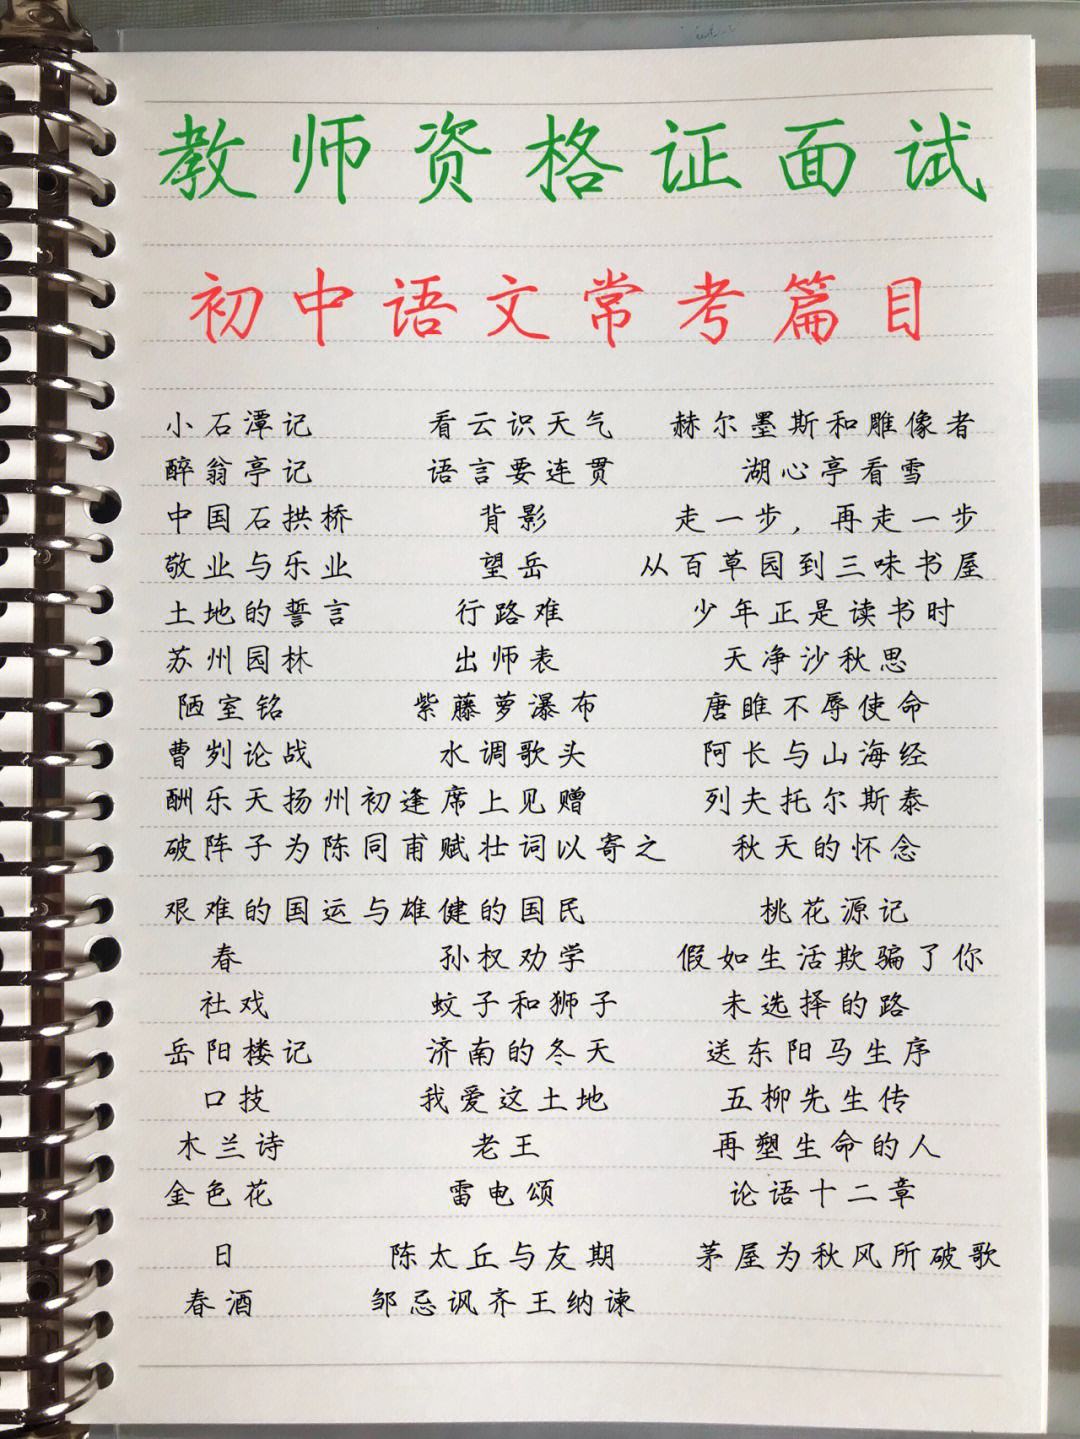 教师资格证面试
初中语文常考篇目
小石潭记 看云识天气 赫尔墨斯和雕像者
醉翁亭记 语言要连贯 湖心亭看雪
中国石拱桥 背影 走一步，再走一步
敬业与乐业 望岳 从百草园到三味书屋
土地的誓言 行路难 少年正是读书时
苏州园林 出师表 天净沙秋思
陋室铭 紫藤萝瀑布 唐雎不辱使命
曹刿论战 水调歌头 阿长与山海经
酬乐天扬州初逢席上见赠 列夫托尔斯泰
破阵子为陈同甫赋壮词以寄之 秋天的怀念
艰难的国运与雄健的国民 桃花源记
春 孙权劝学 假如生活欺骗了你
社戏 蚊子和狮子 未选择的路
岳阳楼记 济南的冬天 送东阳马生序
口技 我爱这土地 五柳先生传
木兰诗 老王 再塑生命的人
金色花 雷电颂 论语十二章
日 陈太丘与友期 茅屋为秋风所破歌
春酒 邹忌讽齐王纳谏